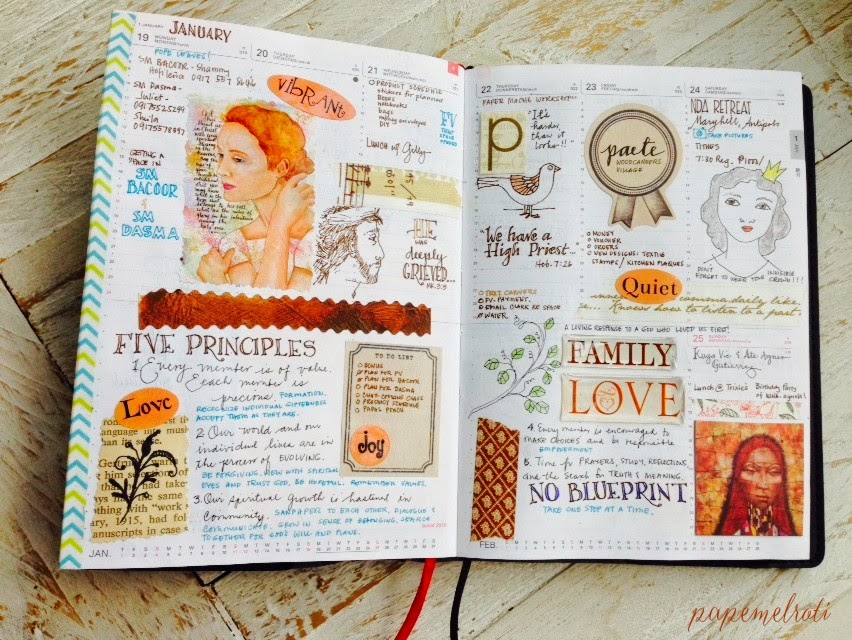 1 JANUARY
JANUARY
19 MONDAY
POPE LEAVES!
SM BACOOR - Shammy
SM Dasma -
Juliet -
09175525299
Sheila
GETTING A
SPACE IN
SM
BACOOR
&
SM
DASMA
20 TUESDAY
VIBRANT
21 WEDNESDAY
PRODUCT SCHEDULE
stickers for planner
Boxes
notebooks
bags
DIY
Lunch w/ Gilly
HE
was
deeply
GRIEVED...
MK. 3:5
FIVE PRINCIPLES
1. Every member is of value.
Each member is
precious. FORMATION.
RECOGNIZE INDIVIDUAL GIFTEDNESS
ACCEPT THEM AS THEY ARE.
Love
2. Our world and our
individual lives are in
the process of EVOLVING.
BE FORGIVING, VIEW WITH SPIRITUAL
EYES AND TRUST GOD, BE HOPEFUL.
3. Our spiritual Growth is fostered in
community. SANDPAPER TO EACH OTHER, DIALOGUE &
COMMUNICATE. GROW IN SENSE OF BELONGING. SEARCH
TOGETHER FOR GOD'S WILL AND PLANS.
TO DO LIST
BONUS
PLAN FOR FV
PLAN FOR BACOOR
PLAN FOR DASMA
PRODUCT SCHEDULE
joy
language in
than its sense.
German
had take
the same
thing with "work
1915, had fol
manuscripts in case
JAN.
22 THURSDAY
PAPER MACHE WORKSHOP
p
It's
harder
than it
looks!!
"We have a
High Priest..."
Heb. 7:26
FV. PAYMENT.
WATER
23 FRIDAY
paete
WOODCARVERS
VILLAGE
MONEY
VOUCHER
ORDERS
NEW DESIGNS: TEXTILE
STAMPS / KITCHEN PLAQUES
Quiet
24 SATURDAY
NDA RETREAT
Maryhill, Antipolo
TAKE PICTURES
TITHES
7:30 Reg.
DON'T FORGET TO WEAR YOUR INVISIBLE
CROWN!!!
A LOVING RESPONSE TO A GOD WHO LOVED US FIRST!
FAMILY
LOVE
25 SUNDAY
Kuya Vic & Ate Agnes
Gutierrez
Lunch @ Trixie's Birthday Party
4. Every member is encouraged to
make choices and be responsible
EMPOWERMENT
5. Time for PRAYERS, STUDY, REFLECTIONS
and the Search for TRUTH & MEANING.
NO BLUEPRINT
TAKE ONE STEP AT A TIME.
FEB.
papemelroti